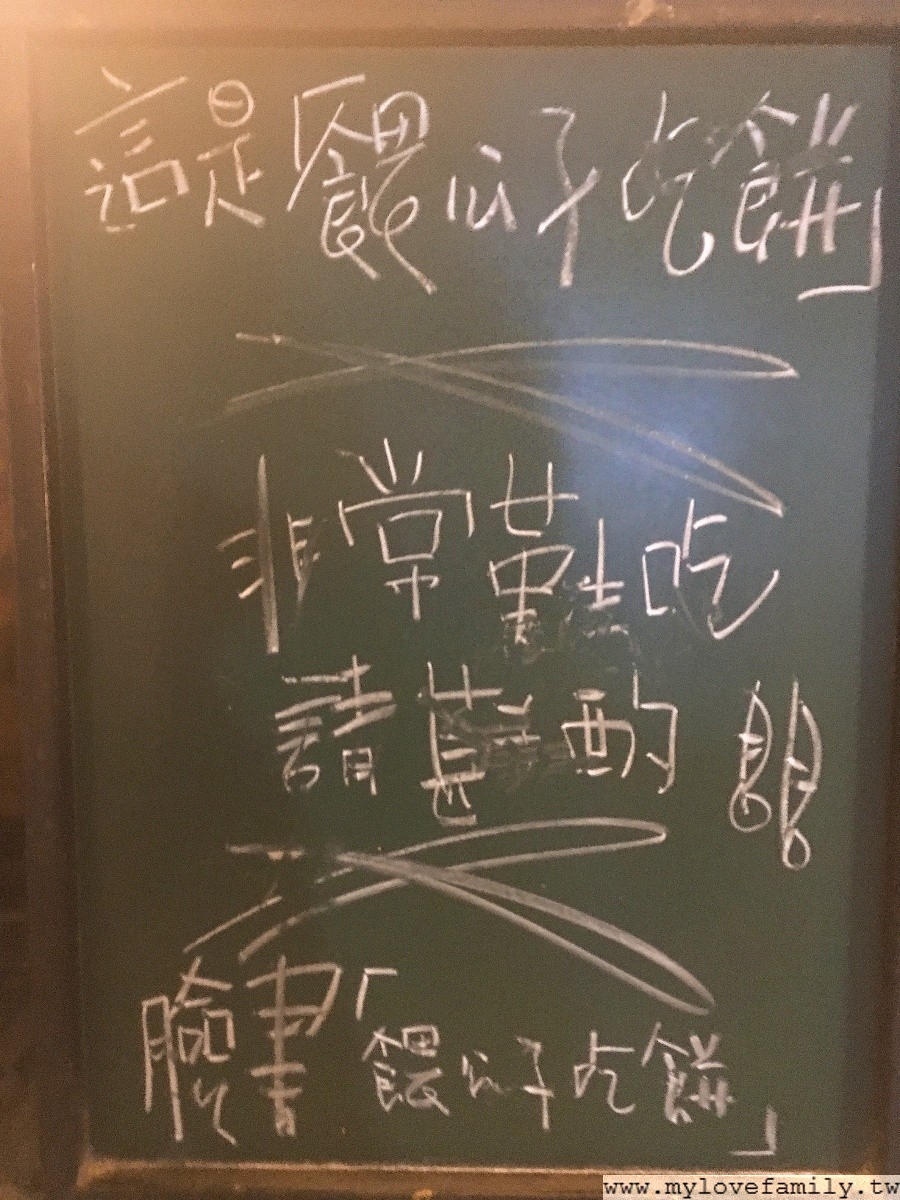 這是「餵公子吃餅」
非常難吃
請斟酌!!
臉書「餵公子吃餅」
www.mylovefamily.tw